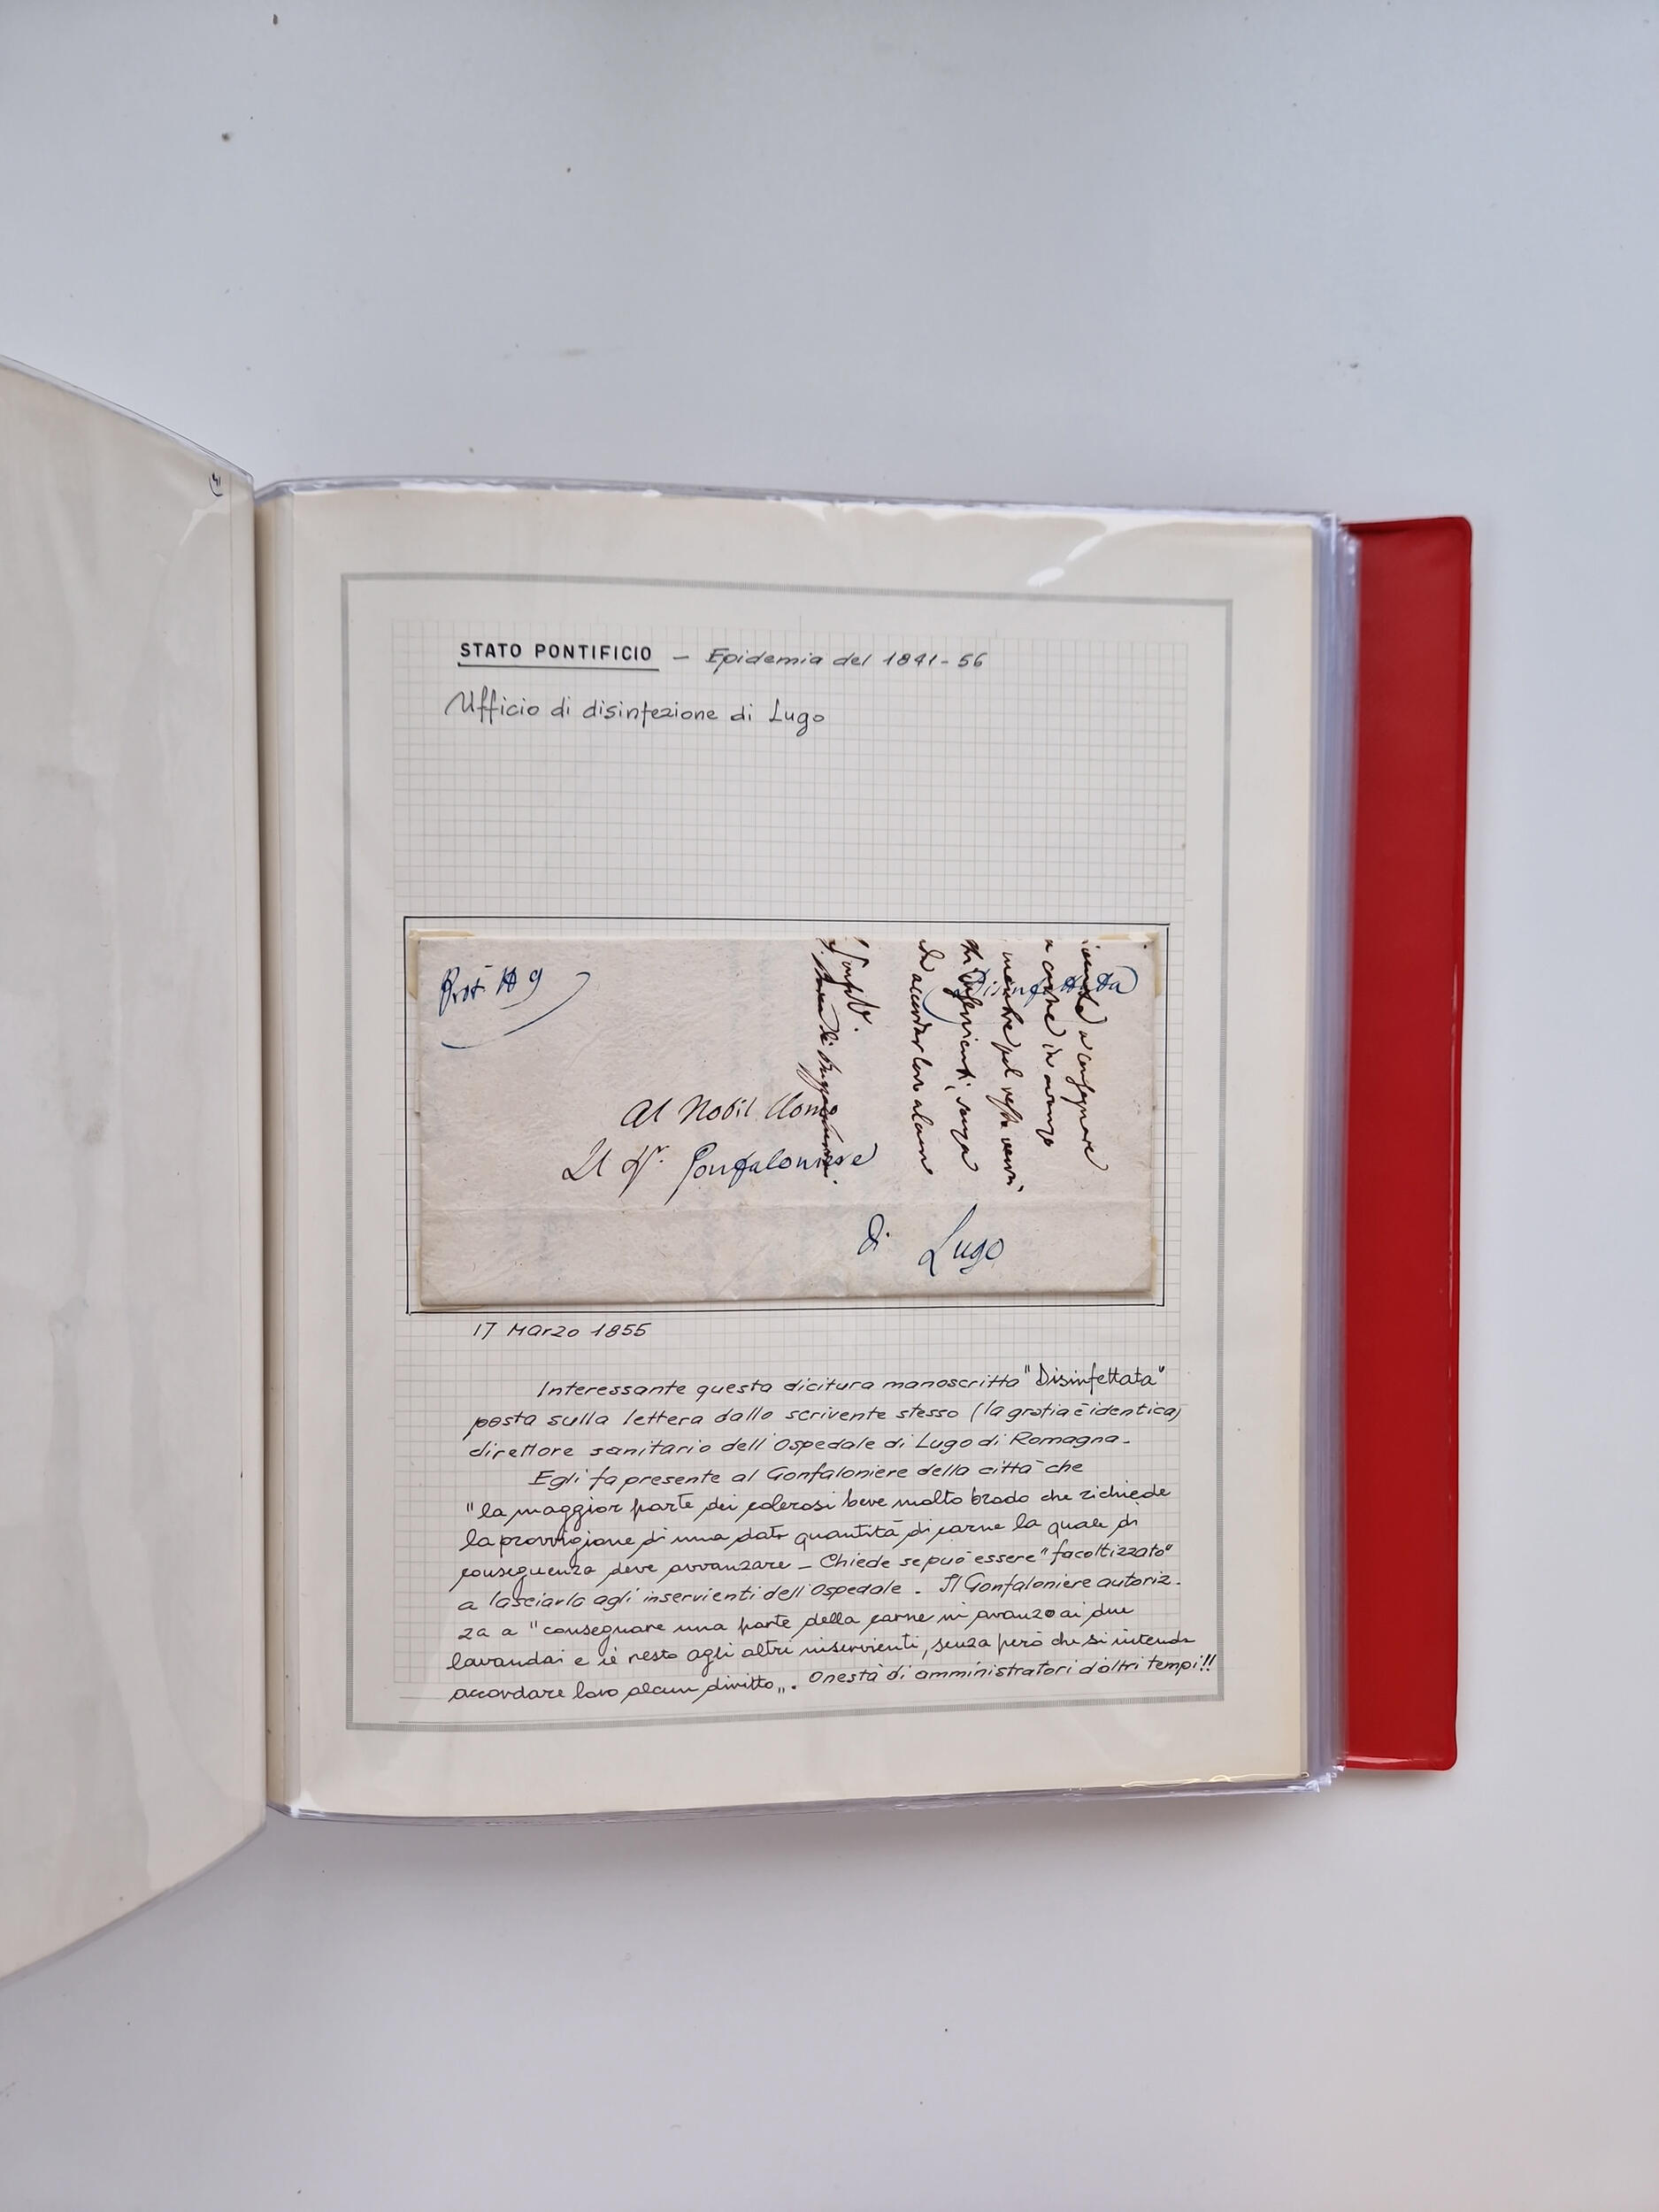 STATO PONTIFICIO - Epidemia del 1841-56
Ufficio di disinfezione di Lugo
Prot. N 9
Disinfettata
Al Nobil Uomo
Il Sr. Gonfaloniere
di Lugo
a consegnare
a carne in avanzo
mentre pel resto
inservienti, senza
di accordar loro alcun
17 Marzo 1855
Interessante questa dicitura manoscritta "Disinfettata"
posta sulla lettera dallo scrivente stesso (la grafia è identica)
direttore sanitario dell'Ospedale di Lugo di Romagna.
Egli fa presente al Gonfaloniere della città che
"la maggior parte dei colerosi beve molto brodo che richiede
la provvigione di una data quantità di carne la quale di
conseguenza deve avvanzare - Chiede se può essere "facoltizzato"
a lasciarla agli inservienti dell'Ospedale. Il Gonfaloniere autoriz-
za a "consegnare una parte della carne in avanzo ai due
lavandai e il resto agli altri inservienti, senza però che si intenda
accordare loro alcun diritto". Onestà di amministratori d'altri tempi!!